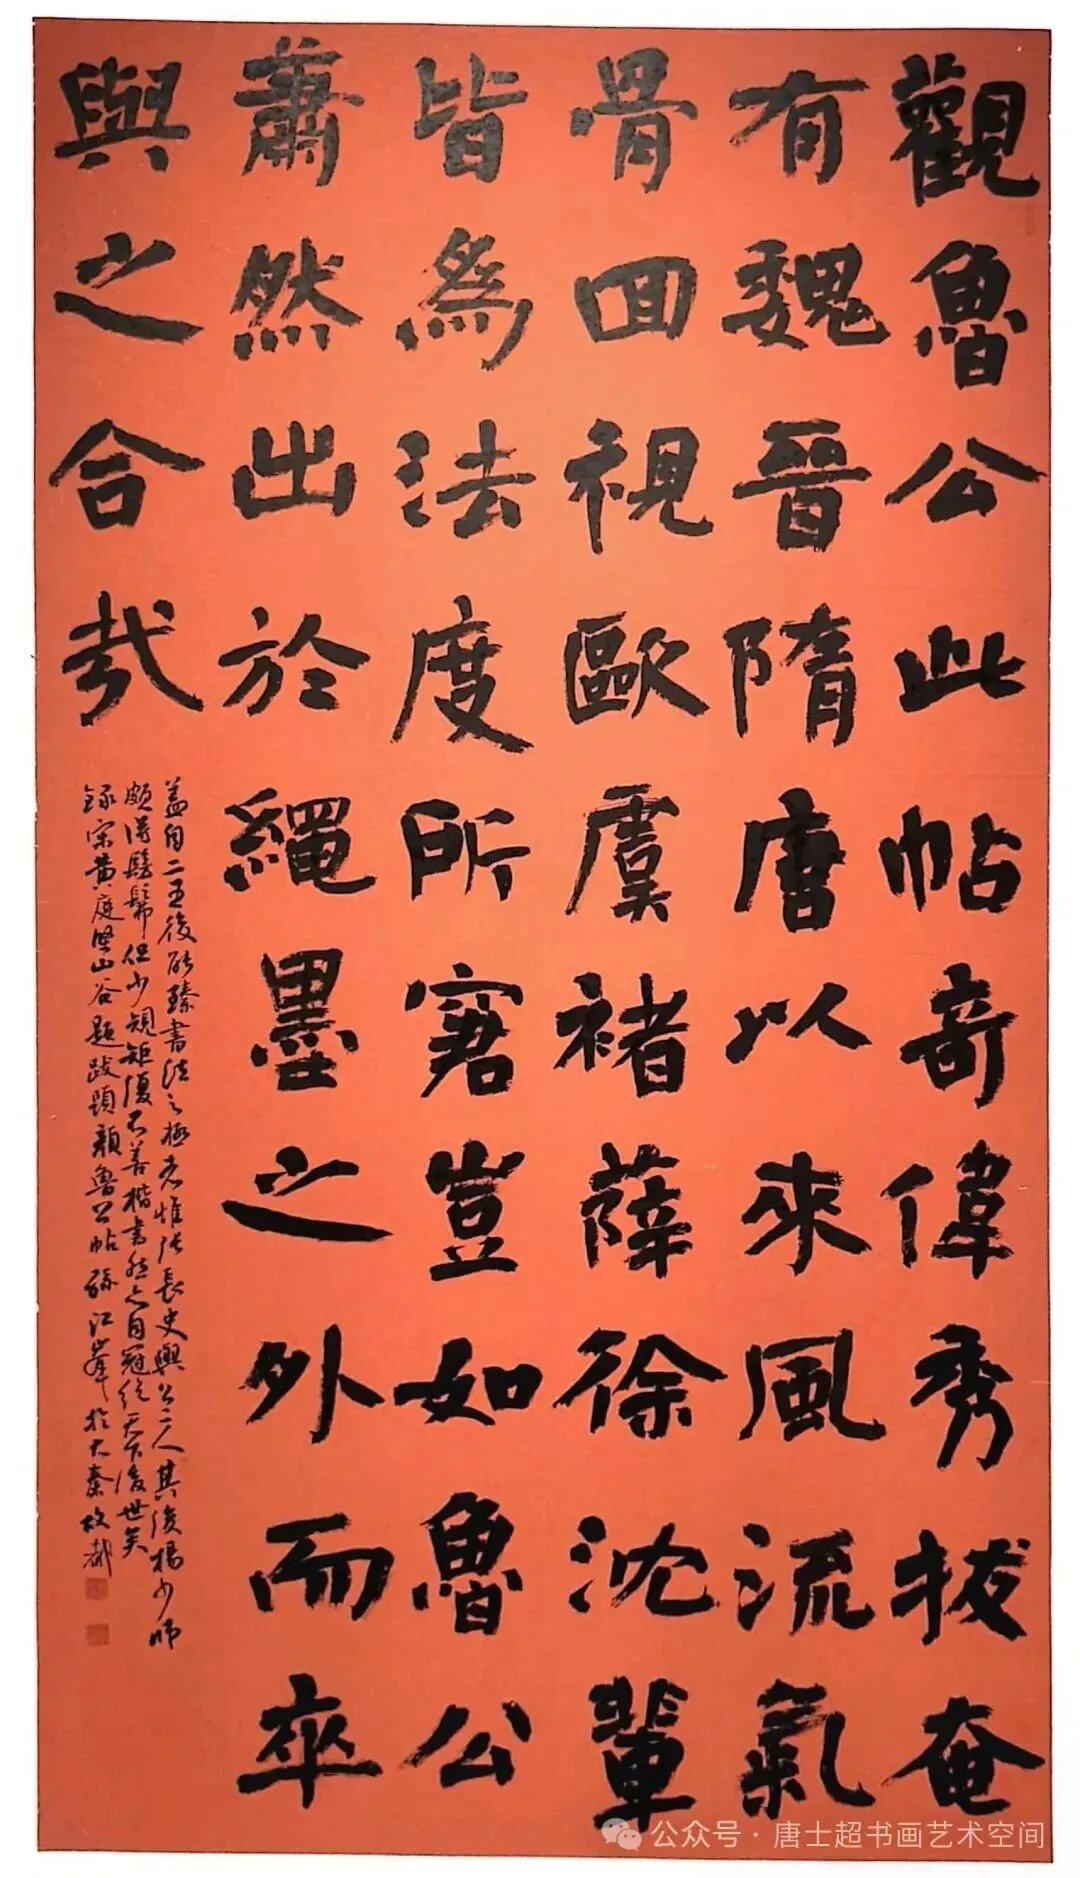 觀魯公此帖奇偉秀拔奄
有魏晉隋唐以來風流氣
骨回視歐虞褚薛徐沈輩
皆爲法度所窘豈如魯公
蕭然出於繩墨之外而卒
與之合哉
蓋自二王後能臻書法之極者惟張長史與公二人其後楊少師
頗得髣髴但少規矩復不善楷書然亦自冠絕天下後世矣
錄宋黃庭堅山谷題跋題顏魯公帖 孫江峯於大秦故都
公众号·唐士超书画艺术空间